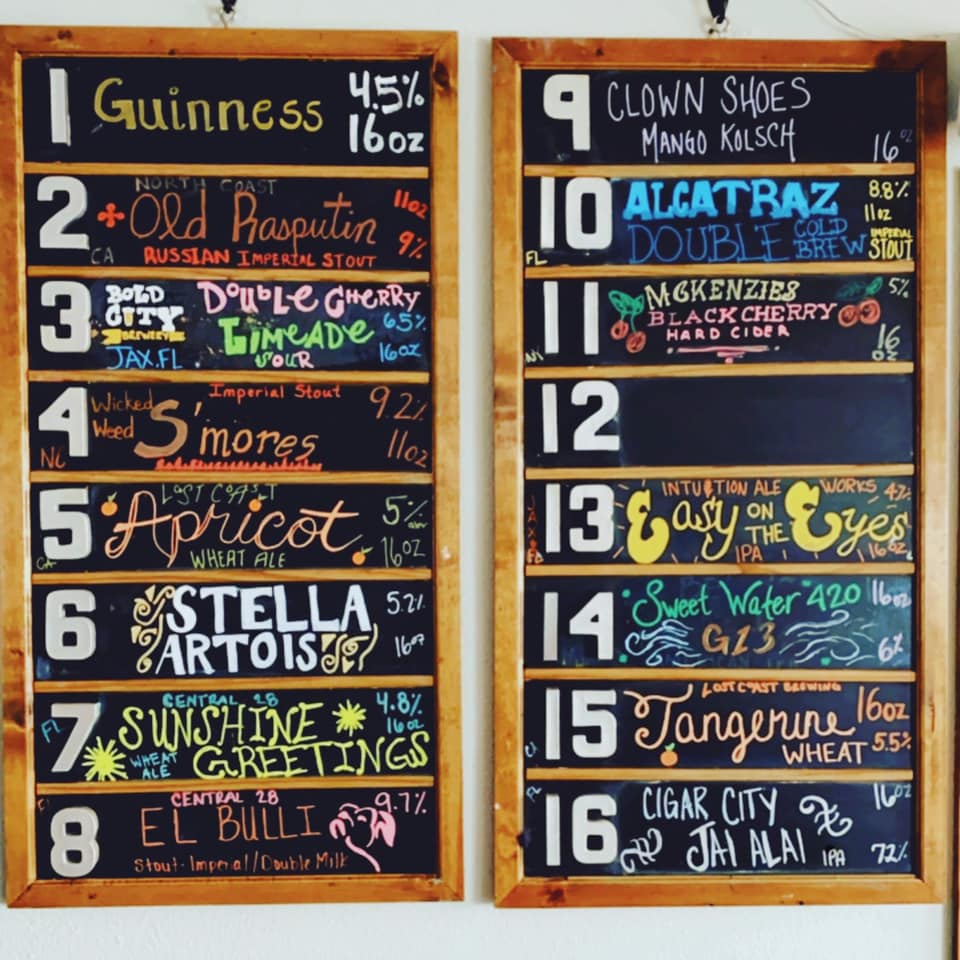 1 Guinness 4.5%
16oz
2 NORTH COAST
Old Rasputin 11oz
CA RUSSIAN IMPERIAL STOUT 9%
3 BOLD CITY BREWERY DOUBLE CHERRY
LIMEADE 6.5%
JAX.FL SOUR 16oz
4 Imperial Stout 9.2%
Wicked Weed S'mores
NC 11oz
5 LOST COAST
Apricot 5%
CA WHEAT ALE 16oz
6 STELLA 5.2%
ARTOIS 16oz
7 CENTRAL 28 4.8%
FL SUNSHINE 16oz
WHEAT ALE GREETINGS
8 CENTRAL 28 9.7%
EL BULLI
Stout-Imperial/Double Milk
9 CLOWN SHOES
MANGO KOLSCH 16oz
10 ALCATRAZ 8.8%
11oz
FL DOUBLE COLD BREW IMPERIAL STOUT
11 MCKENZIES 5%
BLACK CHERRY
NY HARD CIDER 16oz
12
13 INTUITION ALE WORKS
JAX FL Easy ON THE Eyes
IPA 16oz
14 Sweet Water 420 16oz
G13 6%
15 LOST COAST BREWING
Tangerine 16oz
WHEAT 5.5%
16 CIGAR CITY 16oz
FL JAI ALAI IPA 7.2%